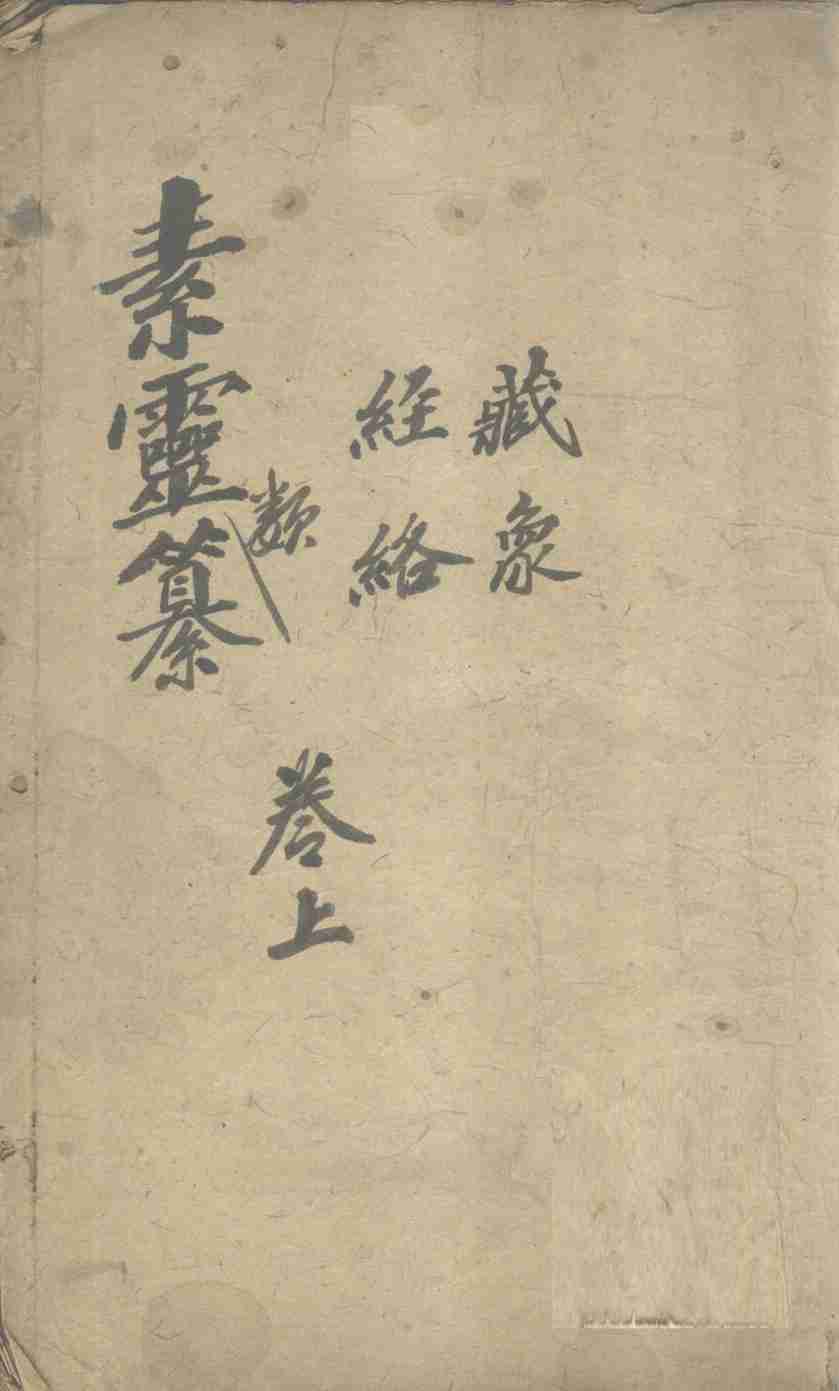 藏象
經絡
卷上
類
素靈纂